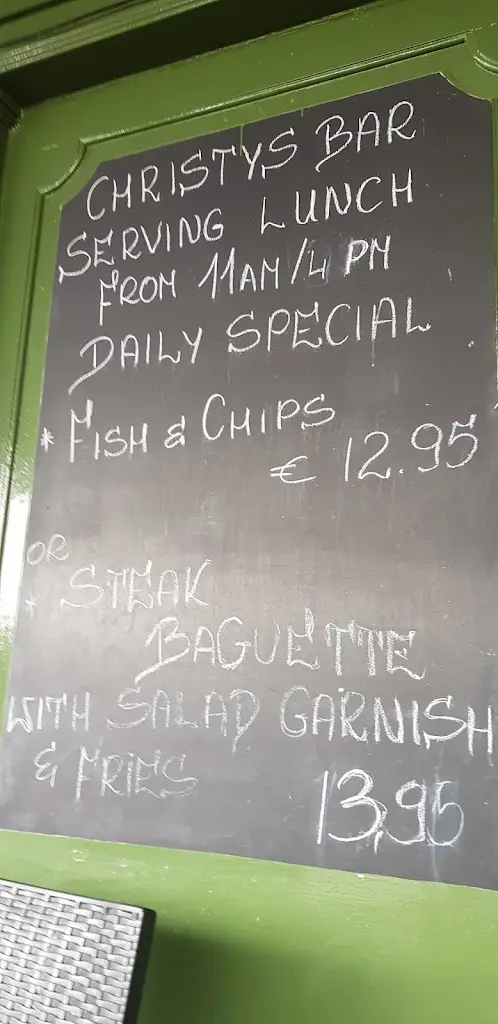 CHRISTYS BAR
SERVING LUNCH
FROM 11AM/4 PM
DAILY SPECIAL
* FISH & CHIPS
€ 12.95
OR
* STEAK
BAGUETTE
WITH SALAD GARNISH
& FRIES 13,95